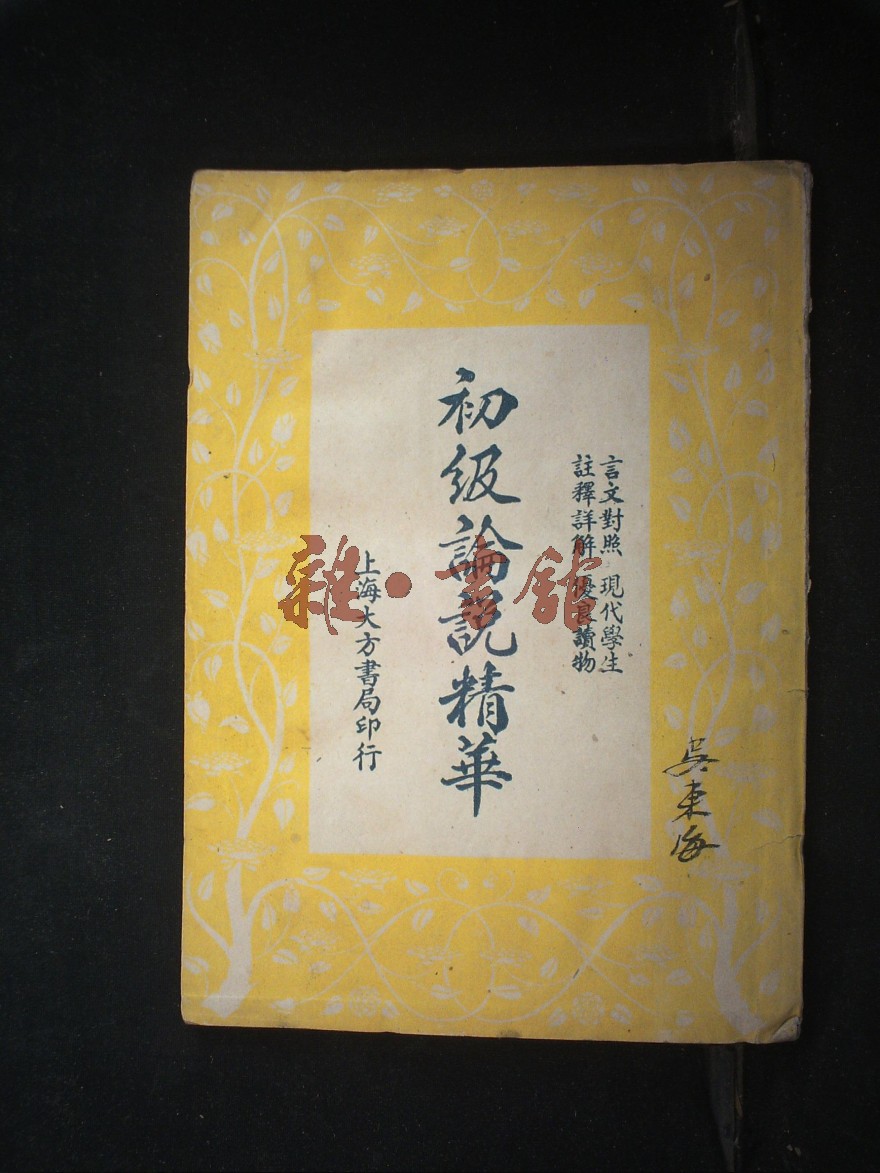 言文對照 現代學生
註釋詳解 優良讀物
初級論說精華
上海大方書局印行
吳東海
雜·書館